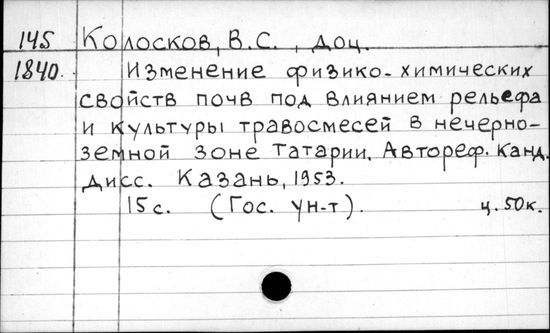 145 Колосков, В.С., доц.
1840. Изменение физико-химических
свойств почв под влиянием рельефа
и культуры травосмесей в нечерно-
земной зоне Татарии. Автореф. Канд.
дисс. Казань, 1953.
15 с. (Гос. ун-т). ц. 50к.